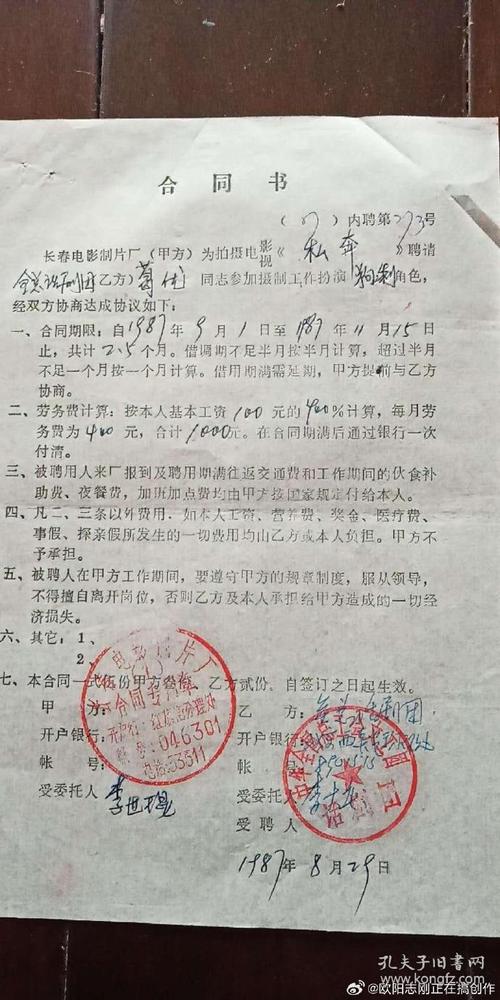 合同书
(87)内聘第273号
长春电影制片厂(甲方)为拍摄电影视《私奔》聘请
全总话剧团乙方)葛优同志参加摄制工作扮演 角色,
经双方协商达成协议如下:
一、合同期限:自1987年9月1日至1987年11月15日
止,共计2.5个月。借调期不足半月按半月计算,超过半月
不足一个月按一个月计算。借用期满需延期,甲方提前与乙方
协商。
二、劳务费计算:按本人基本工资100元的400%计算,每月劳
务费为400元,合计1000元。在合同期满后通过银行一次
付清。
三、被聘用人来厂报到及聘用期满往返交通费和工作期间的伙食补
助费、夜餐费,加班加点费均由甲方按国家规定付给本人。
四、凡二、三条以外费用,如本人工资、营养费、奖金、医疗费、
事假、探亲假所发生的一切费用均由乙方或本人负担。甲方不
予承担。
五、被聘人在甲方工作期间,要遵守甲方的规章制度,服从领导,
不得擅自离开岗位,否则乙方及本人承担给甲方造成的一切经
济损失。
六、其它:1、
2、
七、本合同一式伍份甲方叁份,乙方贰份,自签订之日起生效。
甲方:
乙方:全总话剧团
开户银行:
开户银行:
帐号:
帐号:
受委托人
受委托人
受聘人
1987年8月29日
电影制片厂
合同专用章
046301
电话:53311
话剧团
孔夫子旧书网
@欧阳志刚正在搞创作